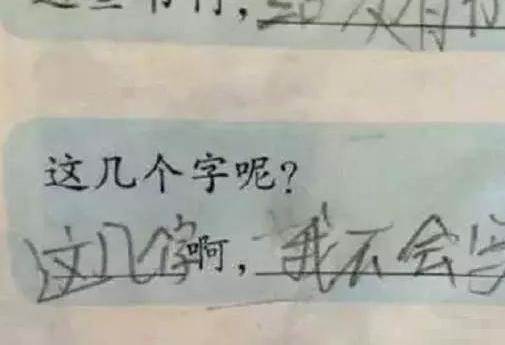 这几个字呢？
这几个字啊，我不会写